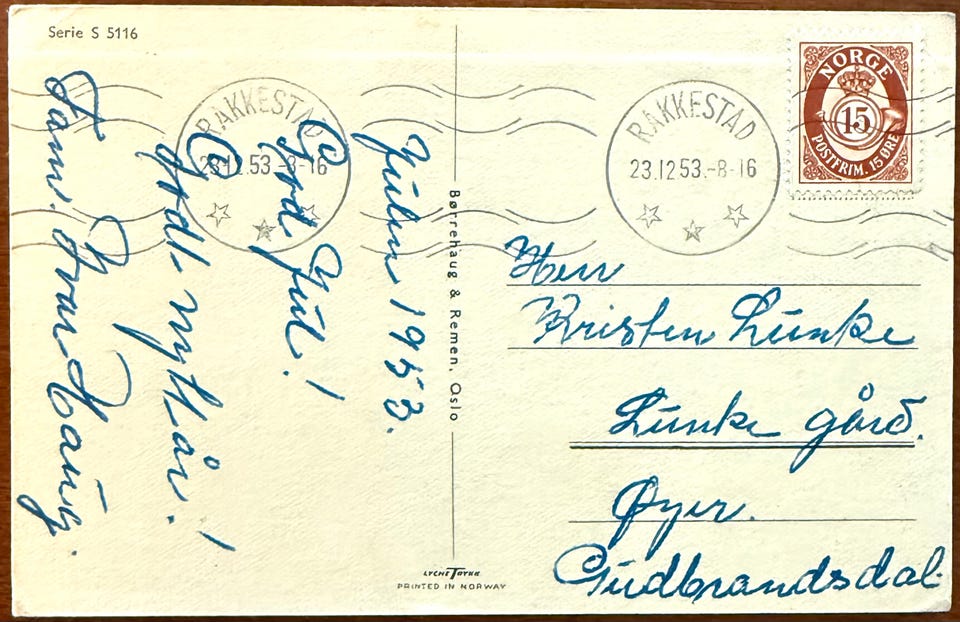 Serie S 5116
RAKKESTAD
23.12.53.-8-16
RAKKESTAD
23.12 53.-8-16
NORGE
15
POSTFRIM. 15 ØRE
Julen 1953.
God Jul!
Godt nyttår!
Fam. Ivar Haug.
Børrehaug & Remen, Oslo
Herr
Kristen Lunke
Lunke gård.
Øyer.
Gudbrandsdal.
LYCHE TRYKK
PRINTED IN NORWAY